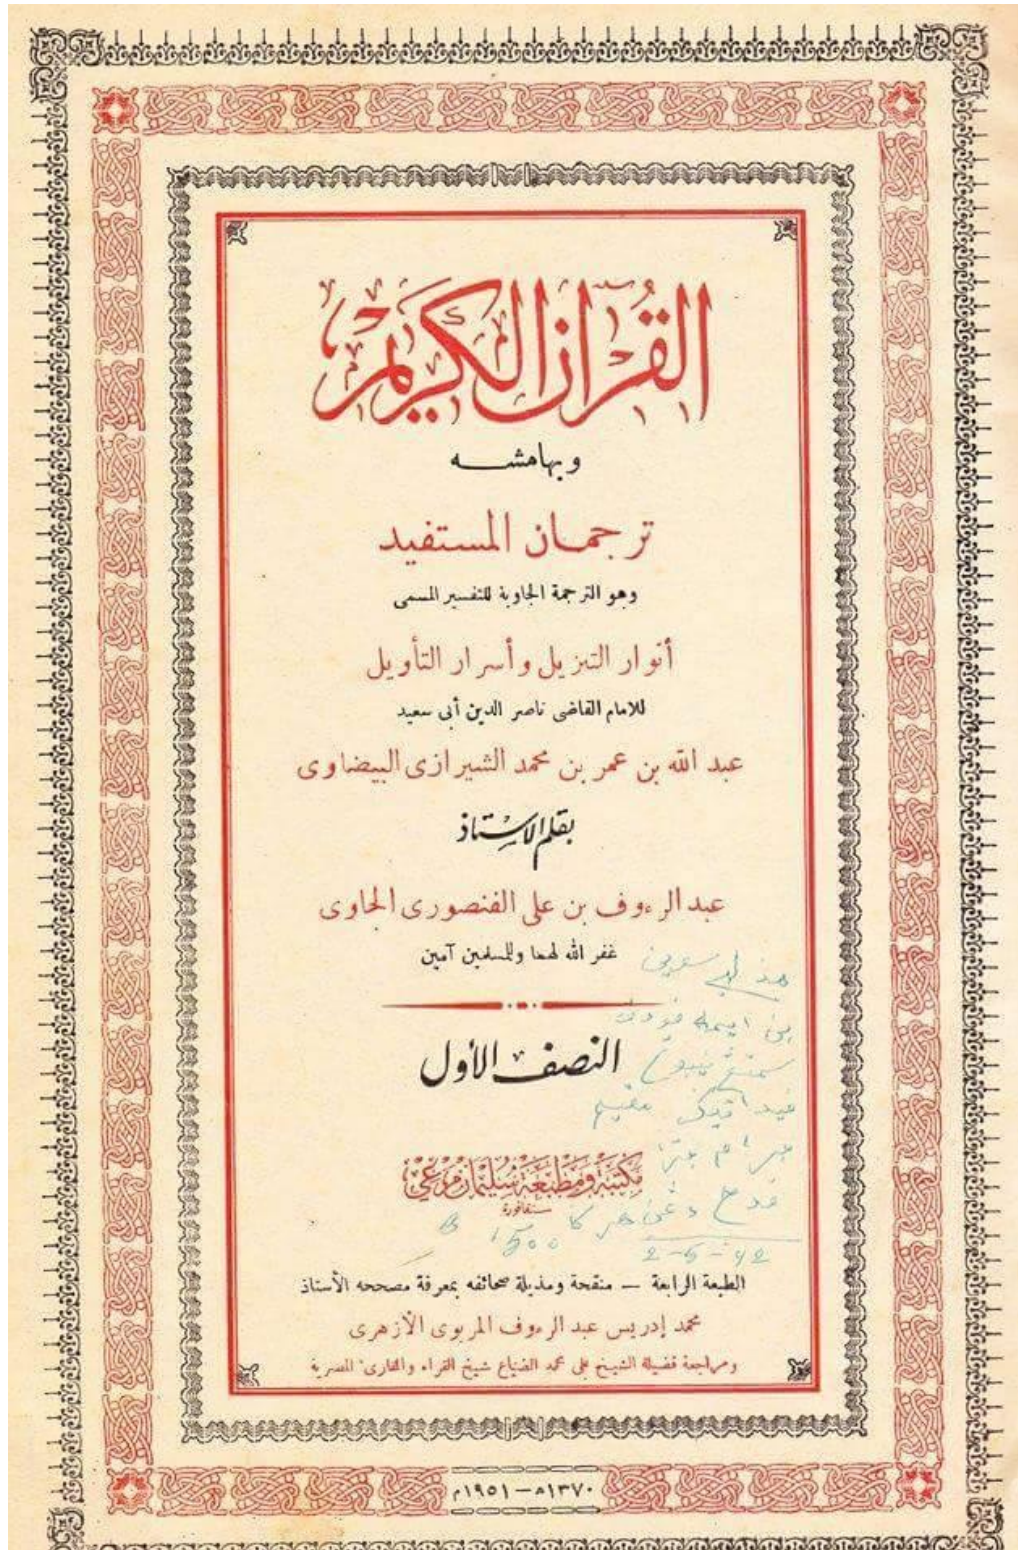 القُرآن الكريم
وبهامشه
ترجمان المستفيد
وهو الترجمة الجاوية للتفسير المسمى
أنوار التنزيل وأسرار التأويل
للامام القاضى ناصر الدين أبى سعيد
عبد الله بن عمر بن محمد الشيرازى البيضاوى
بقلم الاستاذ
عبد الرءوف بن على الفنصورى الجاوى
غفر الله لهما وللمسلمين آمين
النصف الأول
مكتبة ومطبعة سليمان مرعى
سنغافورة
1500
2-5-42
الطبعة الرابعة — منقحة ومذيلة صحائفه بمعرفة مصححه الأستاذ
محمد إدريس عبد الرءوف المربوى الأزهرى
ومراجعة فضيلة الشيخ على محمد الضباع شيخ القراء والمقارئ المصرية
١٣٧٠هـ — ١٩٥١م